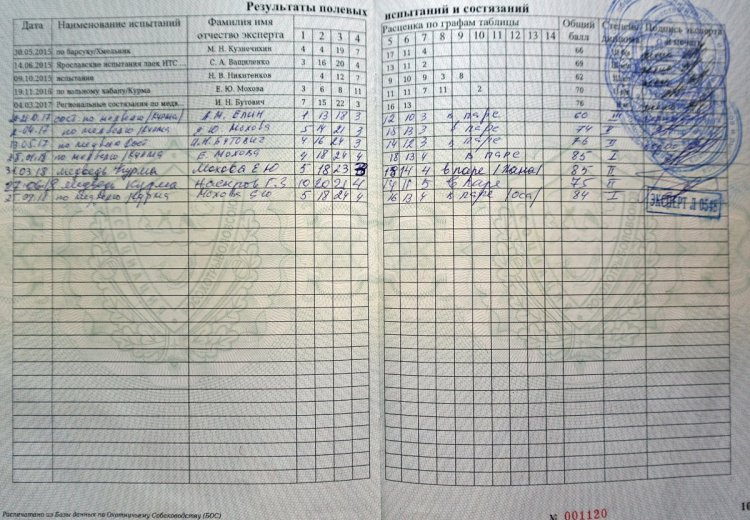 Результаты полевых испытаний и состязаний
Дата Наименование испытаний Фамилия имя отчество эксперта 1 2 3 4 Расценка по графам таблицы 5 6 7 8 9 10 11 12 13 14 Общий балл Степень диплома Подпись эксперта и печать
30.05.2015 по барсуку/Хмельник М. Н. Кузнечихин 4 4 19 7 17 11 4 66
14.06.2015 Ярославские испытания лаек ИТС С. А. Ващиленко 3 16 20 4 13 11 2 69
09.10.2015 испытание Н. В. Никитенков 4 12 7 9 10 9 3 8 62
19.11.2016 по вольному кабану/Курма Е. Ю. Мохова 3 6 8 11 11 11 7 11 2 70
04.03.2017 Региональные состязания по медв. И. Н. Бутович 7 15 22 3 16 13 76
.17 сост по медведю/Курма/ Елин 1 13 18 3 12 10 3 в паре 60 III
по медведю/Курма Мохова 5 14 21 3 13 3 в паре 74 II
.05.17 по медведю сост И.Н. Бутович 4 16 24 3 14 12 3 в паре 76 II
.01.18 по медведю/Курма Е. Мохова 4 18 24 4 18 13 4 в паре 85 I
.03.18 медведь Курма Мохова Е Ю 5 18 23 14 4 в паре 85 I
.18 медведь Курма 10 20 21 4 14 5 в паре 75 II
.18 по медведю Курма Мохова ЕЮ 5 18 24 4 16 13 4 в паре /оса/ 84 I
ЭКСПЕРТ Л 0545
Распечатано из Базы данных по Охотничьему Собаководству (БОС)
№ 001120